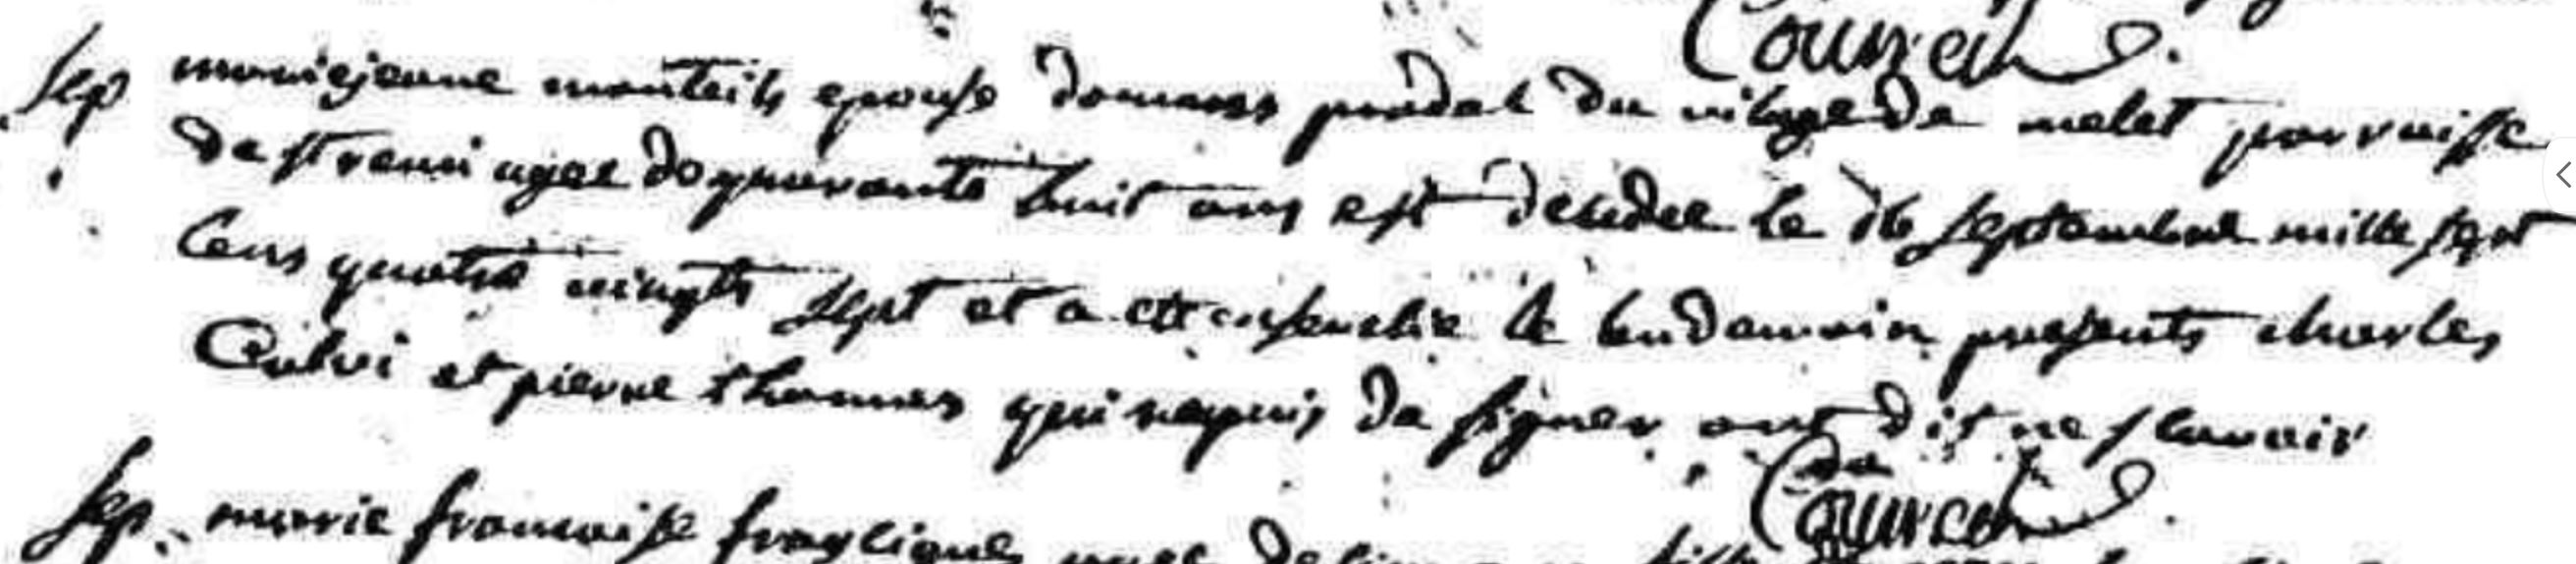 Courcel
sep mariejeanne monteils epouse pradal du vilage de melet parroisse
de st remi agee de quarante huit ans est decedee le 16 septembre mille sept
cens quatre vingts sept et a ete ensevelie le lendemain presents charles
Calvi et pierre thomas qui requis de signer ont dit ne scavoir
Courcel
sep. marie francoise agee de